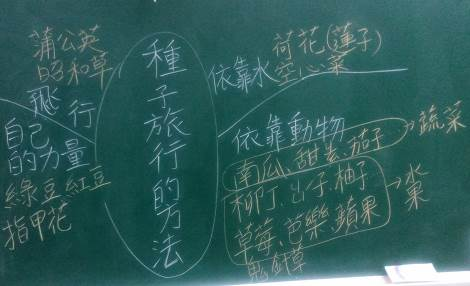 種子旅行的方法
蒲公英
昭和草
飛行
自己
的力量
綠豆、紅豆
指甲花
依靠水
荷花(蓮子)
空心菜
依靠動物
南瓜、甜椒、茄子
→蔬菜
柳丁、柚子
草莓、芭樂、蘋果
→水果
鬼針草